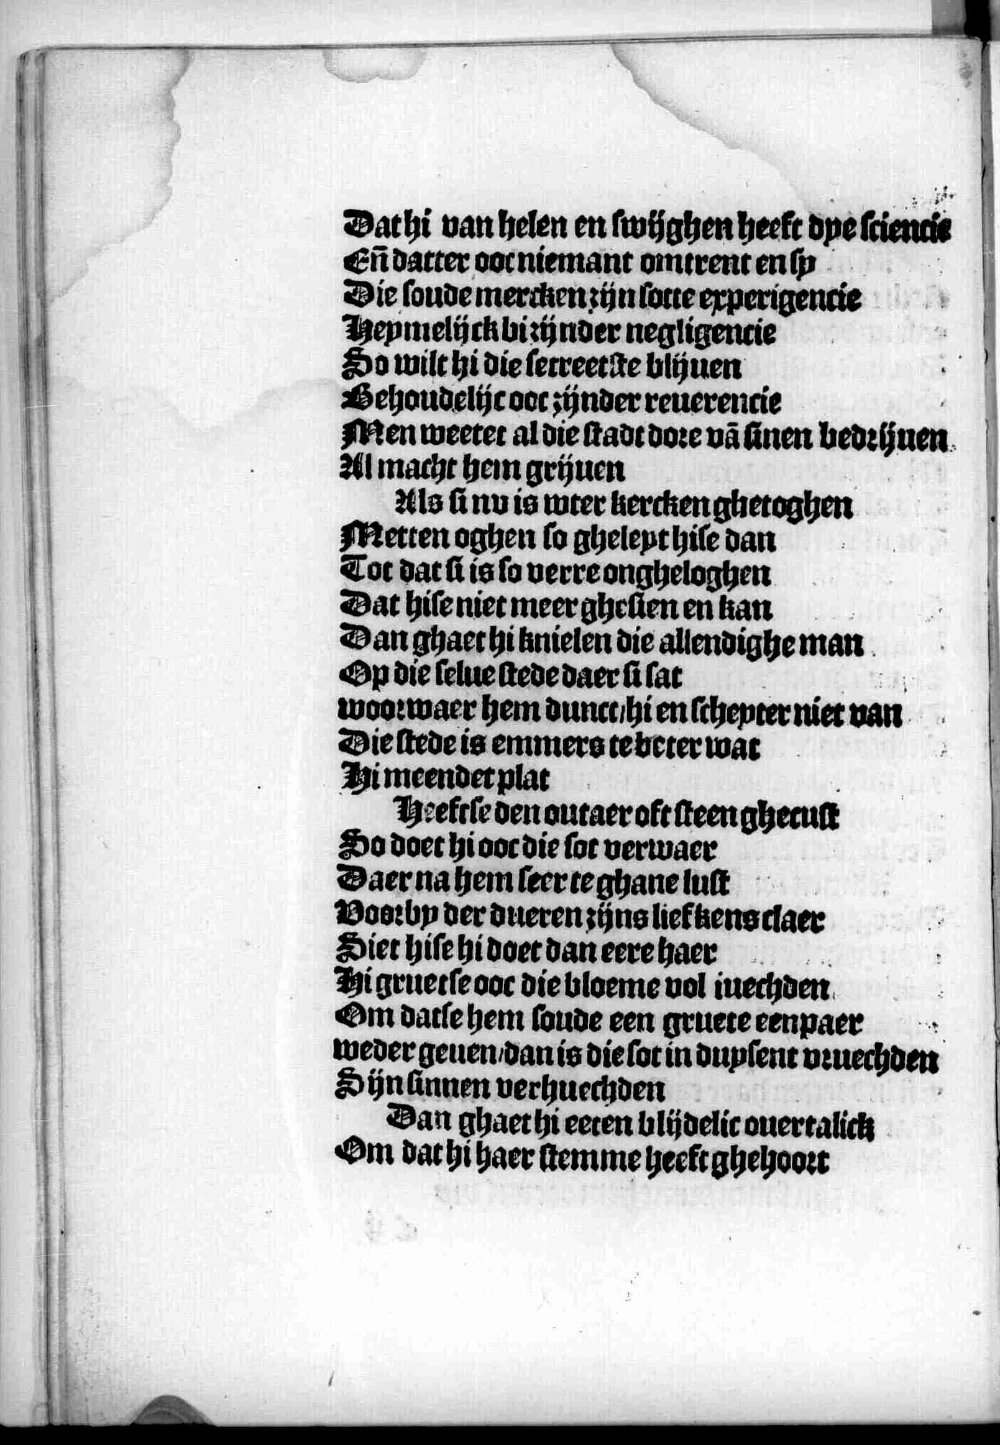 Dat hi van helen en swijghen heeft dye sciencie
Eñ datter ooc niemant omtrent en sy
Die soude mercken zijn sotte experigencie
Heymelijck bi zijnder negligencie
So wilt hi die secreetste blijuen
Behoudelijc ooc zijnder reuerencie
Men weetet al die stadt dore vã sinen bedrijuen
Al macht hem grijuen
Als si nv is wter kercken ghetoghen
Metten oghen so gheleyt hise dan
Tot dat si is so verre ongheloghen
Dat hise niet meer ghesien en kan
Dan ghaet hi knielen die allendighe man
Op die selue stede daer si sat
woorwaer hem dunct/hi en schepter niet van
Die stede is emmers te beter wat
Hi meendet plat
Heeftse den outaer oft steen ghecust
So doet hi ooc die sot verwaer
Daer na hem seer te ghane lust
Voorby der dueren zijns liefkens claer
Siet hise hi doet dan eere haer
Hi gruetse ooc die bloeme vol iuechden
Om datse hem soude een gruete eenpaer
weder geuen/dan is die sot in duysent vruechden
Sijn sinnen verhuechden
Dan ghaet hi eeten blijdelic ouertalick
Om dat hi haer stemme heeft ghehoort